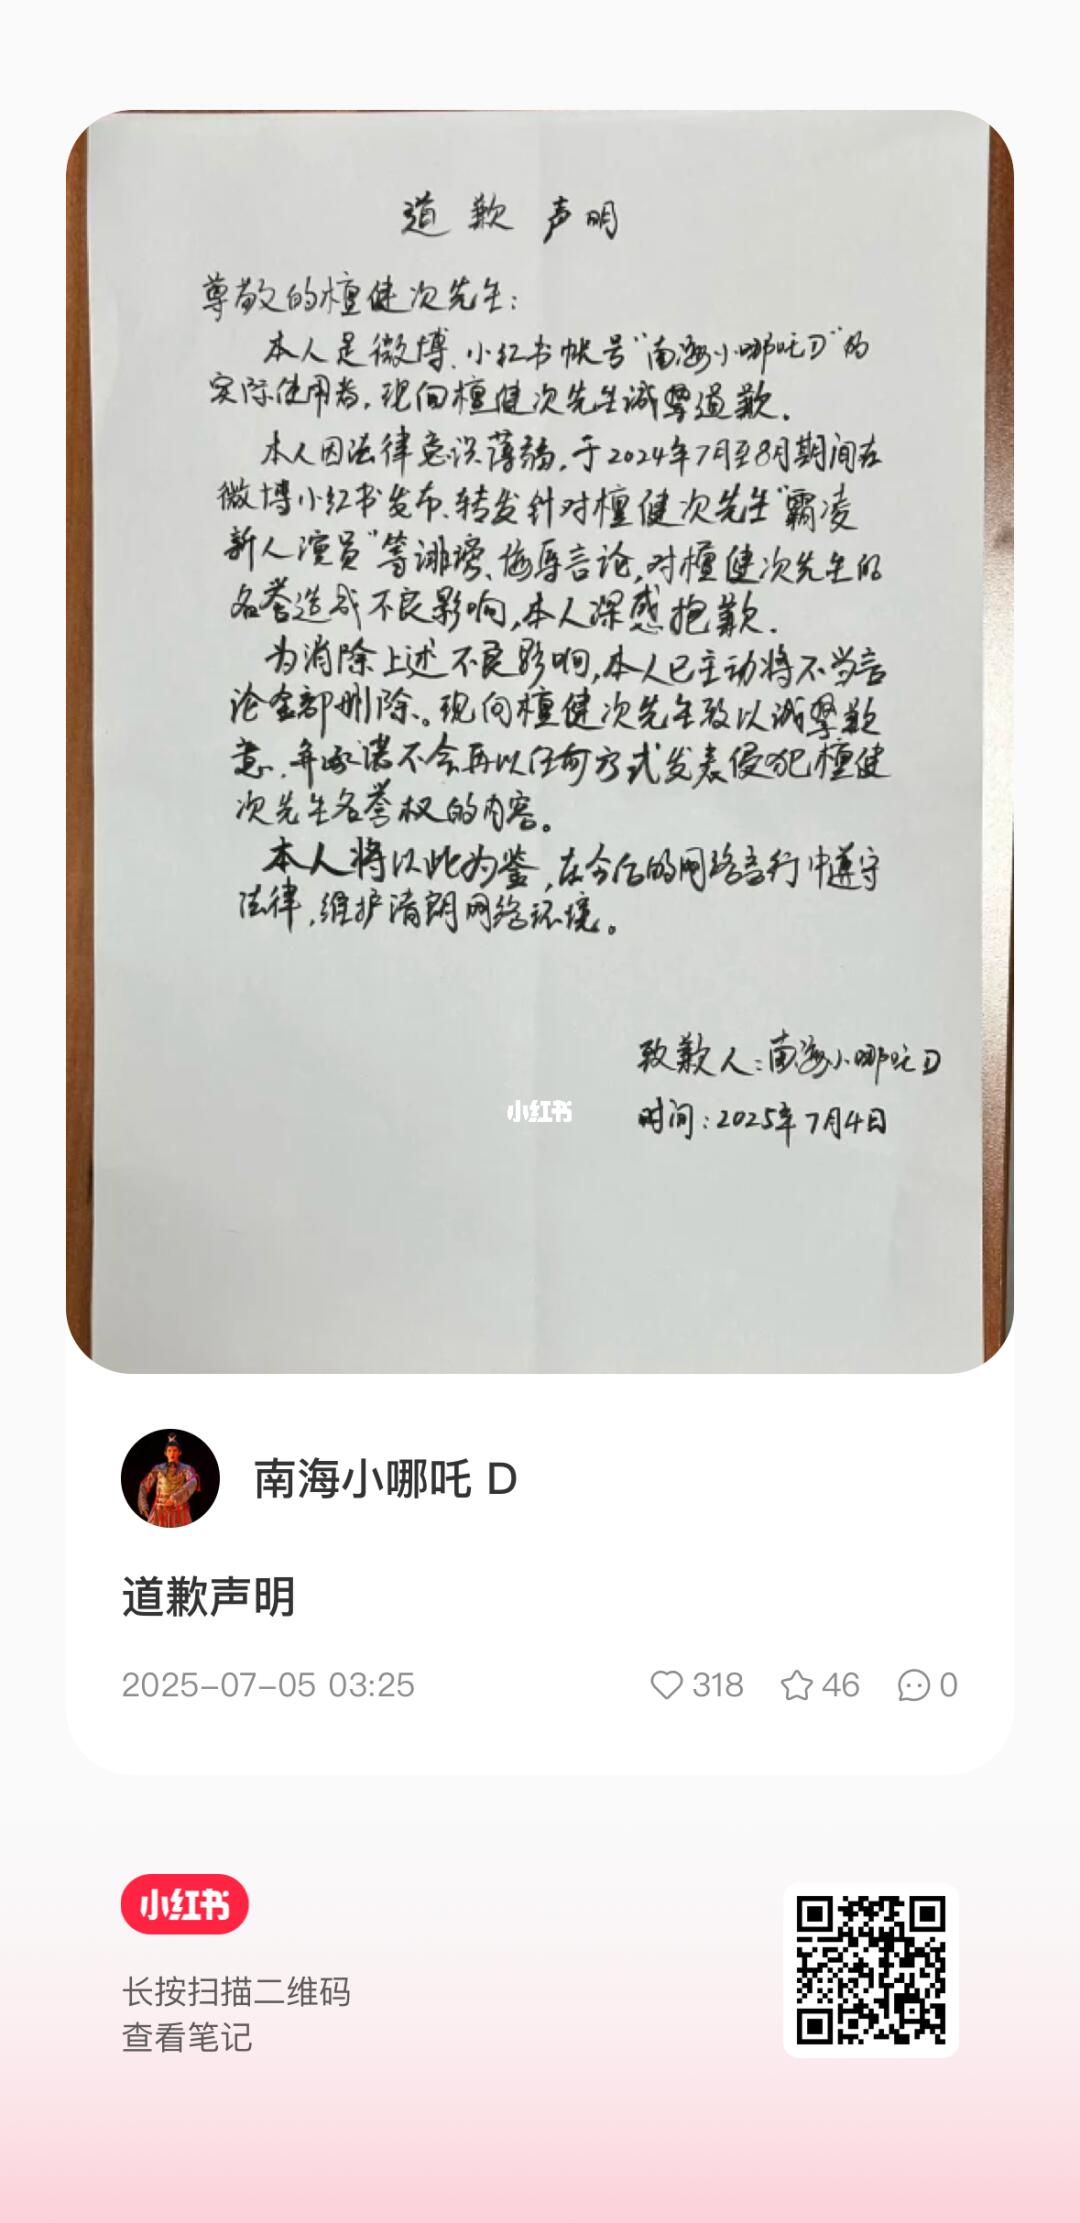 道歉声明
尊敬的檀健次先生：
本人是微博、小红书帐号“南海小哪吒D”的
实际使用者，现向檀健次先生诚挚道歉。
本人因法律意识薄弱，于2024年7月至8月期间在
微博小红书发布、转发针对檀健次先生“霸凌
新人演员”等诽谤、侮辱言论，对檀健次先生的
名誉造成不良影响，本人深感抱歉。
为消除上述不良影响，本人已主动将不当言
论全部删除。现向檀健次先生致以诚挚歉
意，并承诺不会再以任何方式发表侵犯檀健
次先生名誉权的内容。
本人将以此为鉴，在今后的网络言行中遵守
法律，维护清朗网络环境。
致歉人：南海小哪吒D
小红书
时间：2025年7月4日
南海小哪吒 D
道歉声明
2025-07-05 03:25 318 46 0
小红书
长按扫描二维码
查看笔记